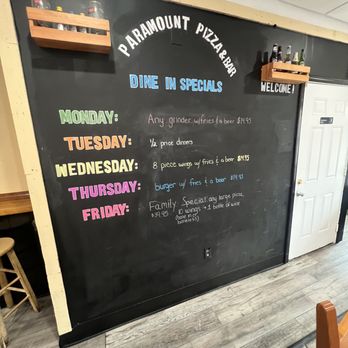 PARAMOUNT PIZZA & BAR
DINE IN SPECIALS
WELCOME!
MONDAY: Any grinder w/fries & a beer $14.95
TUESDAY: 1/2 price dinners
WEDNESDAY: 8 piece wings w/ fries & a beer $14.95
THURSDAY: burger w/ fries & a beer $14.95
FRIDAY: Family Special any large pizza,
10 wings + 1 bottle of wine
(bone in or
boneless)